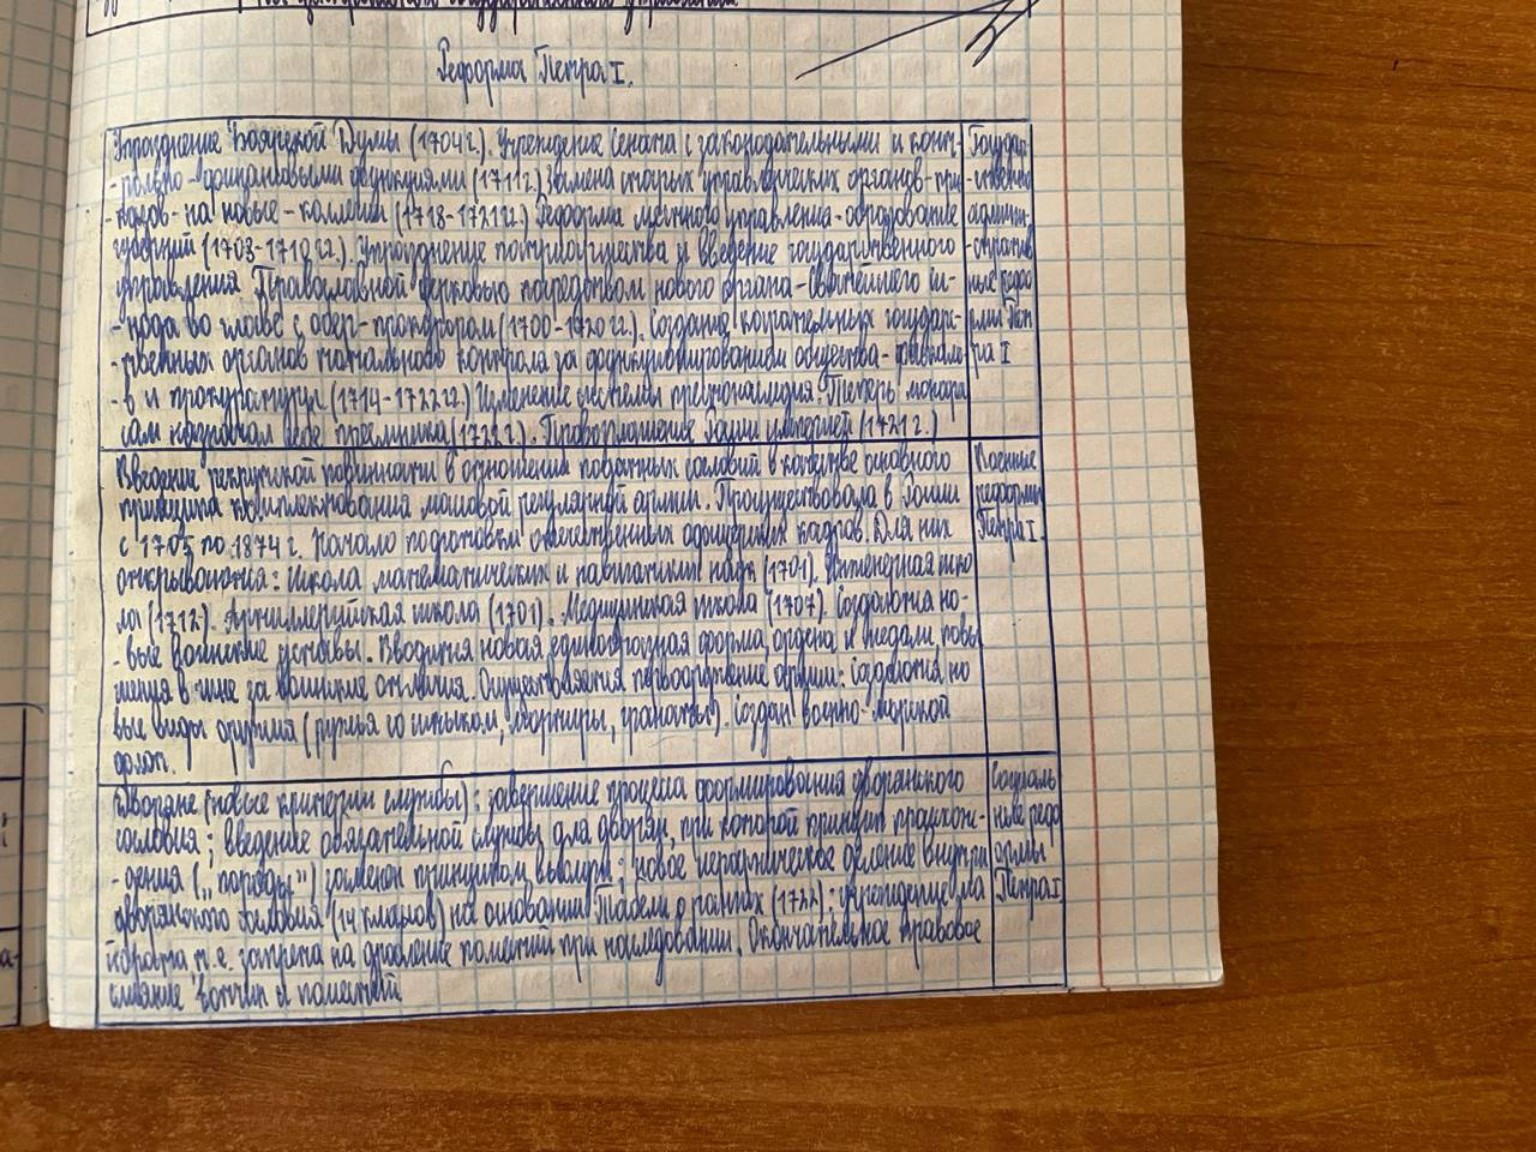 Реформа Петра I.
Упразднение Боярской Думы (1704 г.). Учреждение Сената с законодательными и конт-
- рольно-финансовыми функциями (1711г.) Замена старых управленческих органов-при-
- казов-на новые-коллегии (1718-1721гг.) Реформа местного управления-образование
губерний (1703-1710 гг.). Упразднение патриаршества и введение государственного
управления Православной церковью посредством нового органа-Святейшего си-
- нода во главе с обер-прокурором (1700-1720 гг.). Создание карательных государст-
- венных органов тотального контроля за функционированием общества-фискало-
- в и прокуратуры (1714-1722гг.) Изменение системы престолонаследия. Теперь монарх
сам назначал себе преемника (1722 г.). Провозглашение России империей (1721 г.)
Государ-
- ственно
админи-
- стратив
ные рефо
рмы Пет
ра I
Введение рекрутской повинности в отношении податных сословий в качестве основного
принципа комплектования массовой регулярной армии. Просуществовала в России
с 1705 по 1874 г. Начало подготовки отечественных офицерских кадров. Для них
открываются: Школа математических и навигацких наук (1701). Инженерная шко
ла (1712). Артиллерийская школа (1701). Медицинская школа (1707). Создаются но-
- вые воинские уставы. Вводится новая единообразная форма, ордена и медали, повы
шения в чине за воинские отличия. Осуществляется перевооружение армии: создаются но
вые виды оружия (ружья со штыком, мортиры, гранаты). Создан военно-морской
флот.
Военные
реформы
Петра I.
Дворяне (новые критерии службы): завершение процесса формирования дворянского
сословия; введение обязательной службы для дворян, при которой принцип происхож-
- дения („породы") заменен принципом выслуги; новое иерархическое деление внутри
дворянского сословия (14 классов) на основании Табели о рангах (1722); учреждение ма
йората т.е. запрета на дробление поместий при наследовании. Окончательное правовое
слияние вотчин и поместий
Социаль
ные реф
ормы
Петра I